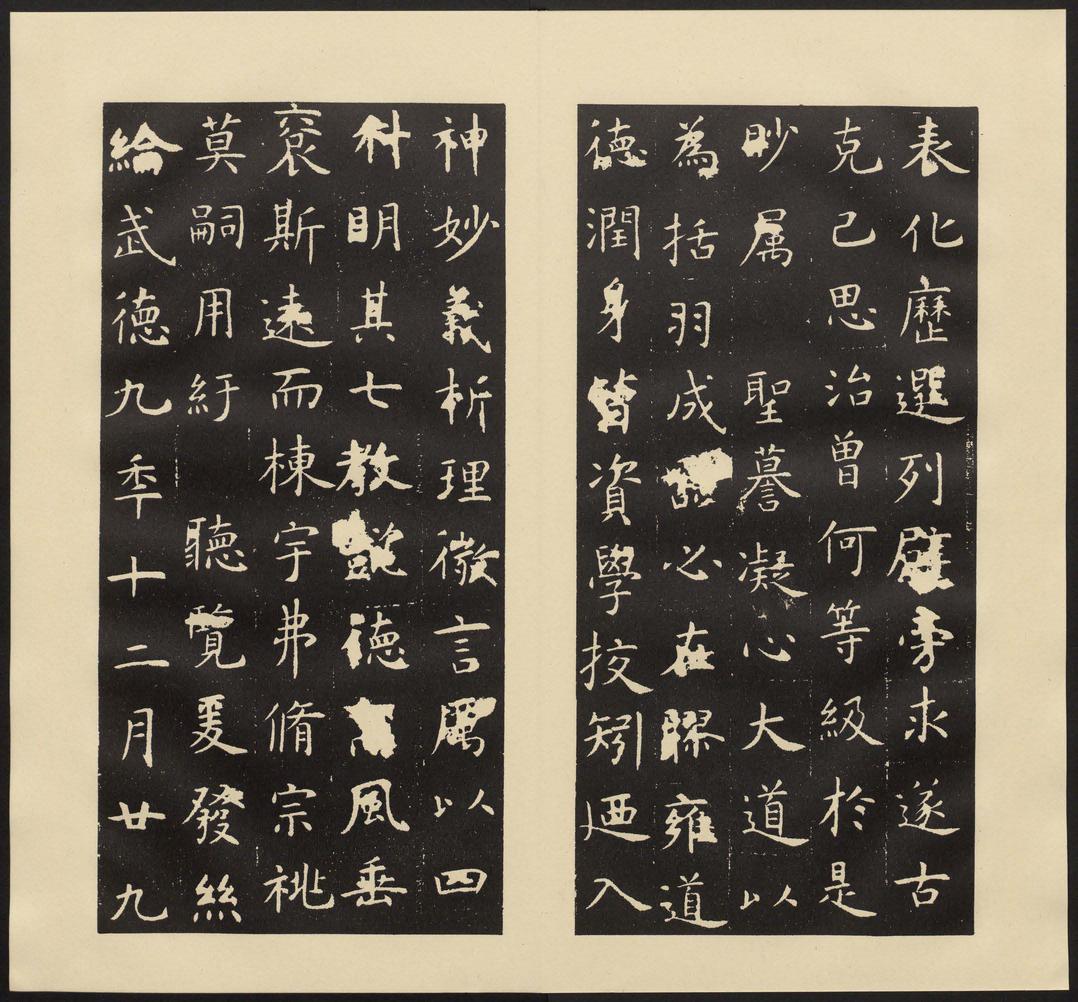 表化歷選列辟旁求遂古
克己思治曾何等級於是
眇属 聖謩凝心大道以
為括羽成器必在膠雍道
德潤身皆資學挍矧廼入
神妙義析理微言厲以四
科明其七教懿德高風垂
裕斯遠而棟宇弗脩宗祧
莫嗣用紆 聽覽爰發絲
綸武德九秊十二月廿九